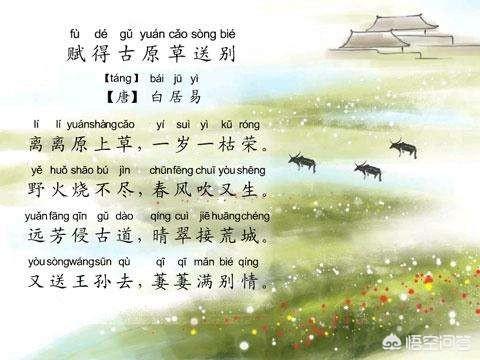 fù dé gǔ yuán cǎo sòng bié
赋得古原草送别
【táng】 bái jū yì
【唐】白居易
lí lí yuánshàngcǎo yí suì yì kū róng
离离原上草，一岁一枯荣。
yě huǒ shāo bú jìn chūnfēng chuī yòu shēng
野火烧不尽，春风吹又生。
yuǎn fāng qīn gǔ dào qíng cuì jiē huāngchéng
远芳侵古道，晴翠接荒城。
yòu sòngwángsūn qù qī qī mǎn bié qíng
又送王孙去，萋萋满别情。
悟空问答